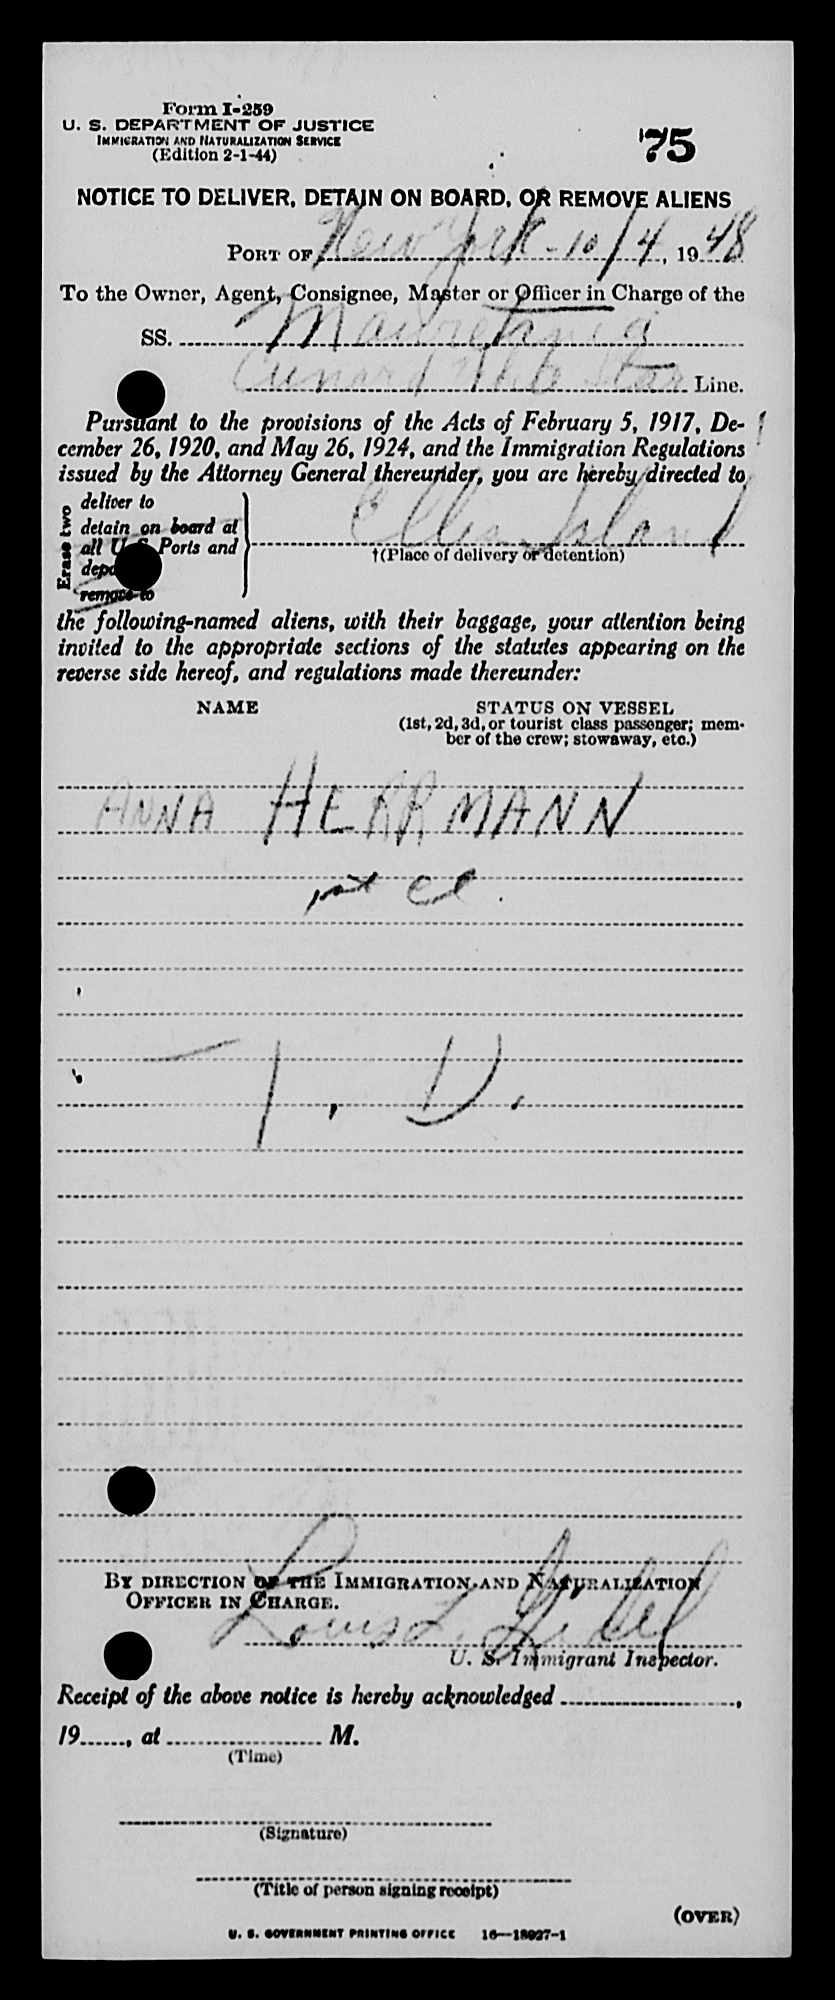 Form I-259
U. S. DEPARTMENT OF JUSTICE
IMMIGRATION AND NATURALIZATION SERVICE
(Edition 2-1-44)
75
NOTICE TO DELIVER, DETAIN ON BOARD, OR REMOVE ALIENS
PORT OF New York - 10/4, 1948
To the Owner, Agent, Consignee, Master or Officer in Charge of the
SS. Mauretania
Cunard White Star Line.
Pursuant to the provisions of the Acts of February 5, 1917, De-
cember 26, 1920, and May 26, 1924, and the Immigration Regulations
issued by the Attorney General thereunder, you are hereby directed to
Erase two
deliver to
detain on board at
all U. S. Ports and
remove to
Ellis Island
†(Place of delivery or detention)
the following-named aliens, with their baggage, your attention being
invited to the appropriate sections of the statutes appearing on the
reverse side hereof, and regulations made thereunder:
NAME STATUS ON VESSEL
(1st, 2d, 3d, or tourist class passenger; mem-
ber of the crew; stowaway, etc.)
ANNA HERRMANN
cl.
T. D.
BY DIRECTION OF THE IMMIGRATION AND NATURALIZATION
OFFICER IN CHARGE.
Louis L.
U. S. Immigrant Inspector.
Receipt of the above notice is hereby acknowledged
19 , at M.
(Time)
(Signature)
(Title of person signing receipt)
(OVER)
U. S. GOVERNMENT PRINTING OFFICE 16—18927-1